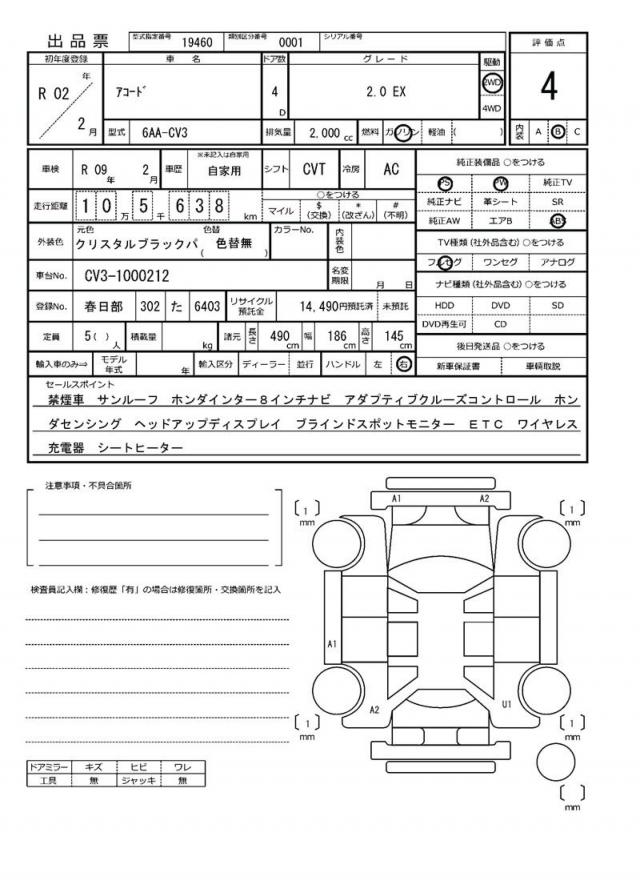 出品票 型式指定番号 19460 類別区分番号 0001 シリアル番号
初年度登録 車名 ドア数 グレード 駆動 評価点
R 02 年 2 月 アコード 4 D 2.0 EX 2WD 4WD 4
型式 6AA-CV3 排気量 2,000 cc 燃料 ガソリン 軽油 ( ) 内装 A B C
車検 R 09 年 2 月 車歴 ※未記入は自家用 自家用 シフト CVT 冷房 AC
純正装備品 ○をつける
PS PW 純正TV
純正ナビ 革シート SR
純正AW エアB ABS
走行距離 1 0 万 5 千 6 3 8 km ○をつける マイル $ (交換) * (改ざん) # (不明)
外装色 元色 クリスタルブラックパ 色替 ( 色替無 ) カラーNo. 内装色
TV種類 (社外品含む) ○をつける
フルセグ ワンセグ アナログ
車台No. CV3-1000212 名変期限 月 日
ナビ種類 (社外品含む) ○をつける
HDD DVD SD
DVD再生可 CD
登録No. 春日部 302 た 6403 リサイクル預託金 14,490円預託済 未預託
定員 5( ) 人 積載量 kg 諸元 長さ 490 cm 幅 186 cm 高さ 145 cm
後日発送品 ○をつける
新車保証書 車輌取説
輸入車のみ⇒ モデル年式 年 輸入区分 ディーラー 並行 ハンドル 左 右
セールスポイント
禁煙車 サンルーフ ホンダインター8インチナビ アダプティブクルーズコントロール ホン
ダセンシング ヘッドアップディスプレイ ブラインドスポットモニター ETC ワイヤレス
充電器 シートヒーター
注意事項・不具合箇所
検査員記入欄：修復歴「有」の場合は修復箇所・交換箇所を記入
ドアミラー キズ ヒビ ワレ
工具 無 ジャッキ 無
A1 A2
[ 1 ] mm [ 1 ] mm
A1
A2 U1
[ 1 ] mm [ 1 ] mm
[ ] mm